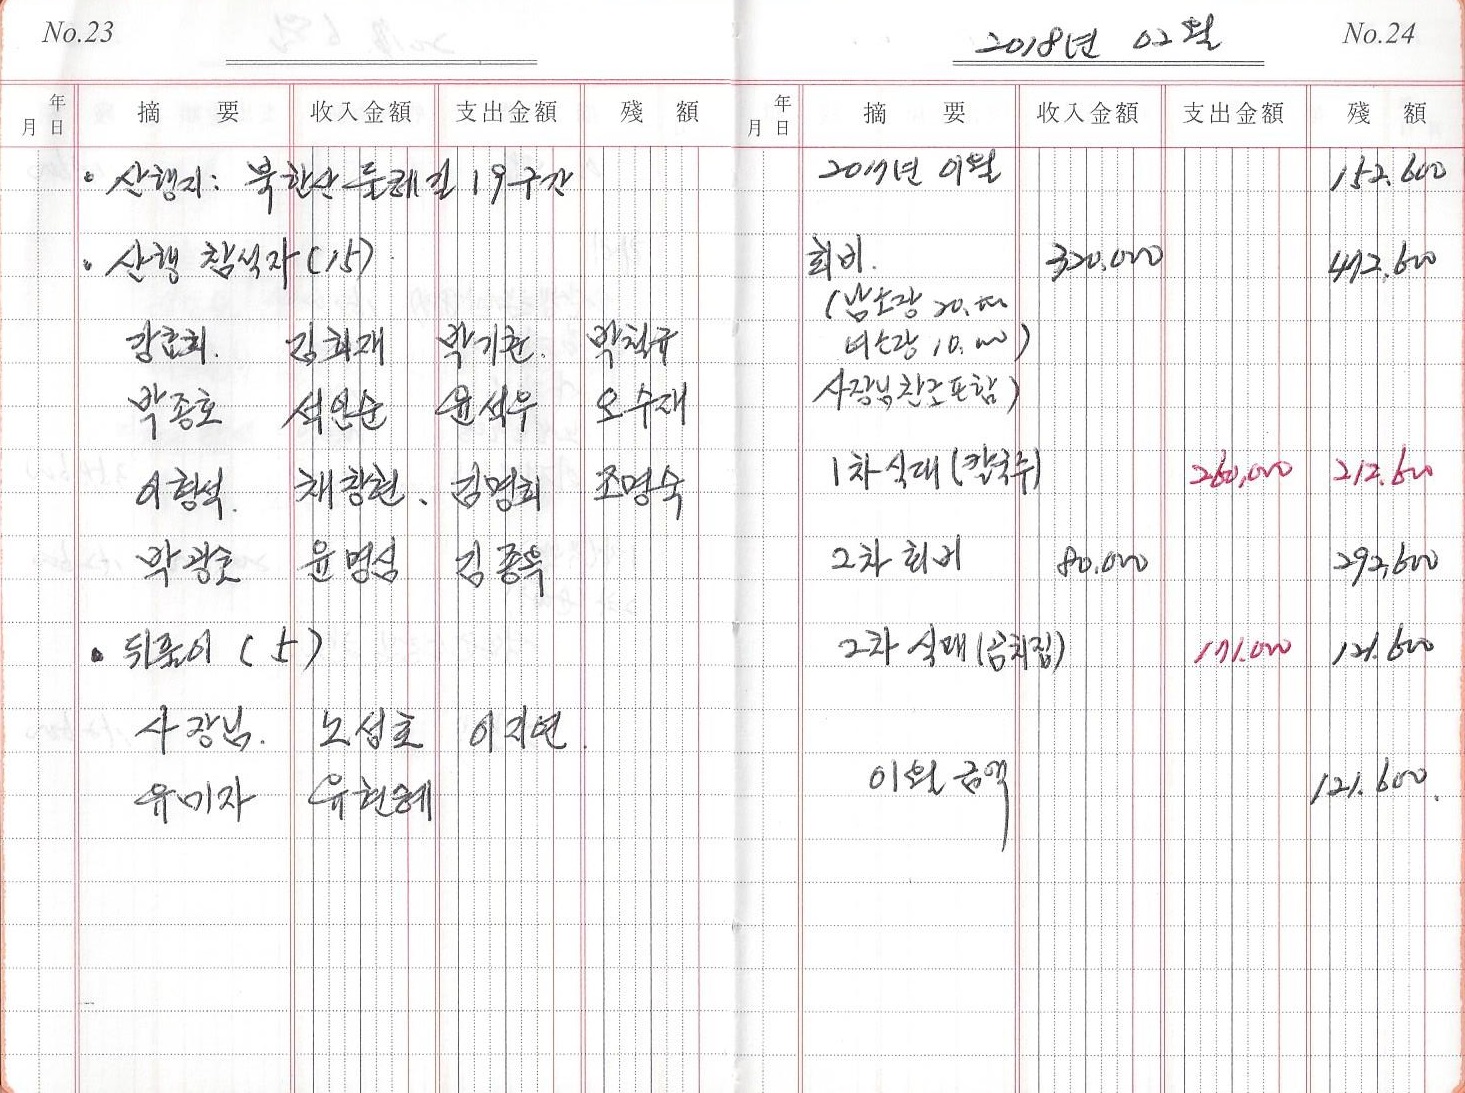 No.23
年
月 日
摘 要
收入金額
支出金額
殘 額
• 산행지: 북한산 둘레길 19구간
• 산행 참석자(15)
강효희. 김희재 박기환. 박칠규
박종호 석인순 윤석우 오수재
이형석. 채창현. 김명희 조명숙
박광호 윤명섭 김종욱
• 뒤풀이 (5)
사장님. 노섬호 이지연.
유미자 유현혜
2018년 02월
No.24
年
月 日
摘 要
收入金額
支出金額
殘 額
2017년 이월 152.600
회비. 320,000 472,600
(남소장 20.000
여소장 10.000)
사장님찬조포함)
1차식대(칼국수) 260,000 212.600
2차 회비 80.000 292,600
2차 식대(곰치집) 171.000 121.600
이월 금액 121.600.